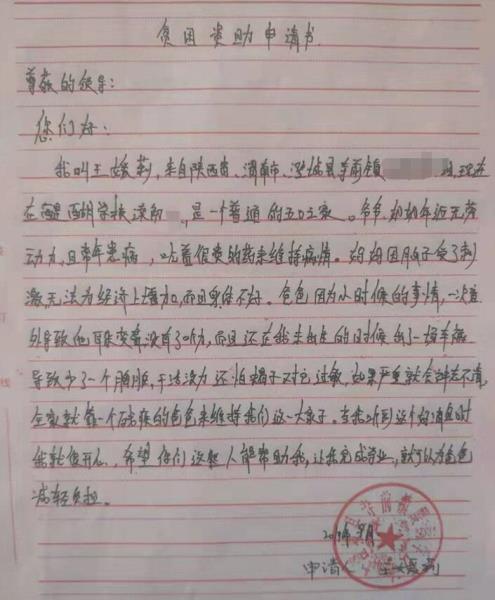 贫困资助申请书
尊敬的领导:
您们好:
我叫王媛莉,来自陕西省、渭南市、澄城县寺前镇 组,现在
在醍醐学校读初 ,是一个普通的五口之家。爷爷,奶奶年迈无劳
动力,且常年患病,吃着很贵的药来维持病情。妈妈因月子受了刺
激无法为经济上增加,而且身体不好。爸爸因为小时候的事情,一次意
外导致他耳朵变聋,没有了听力,而且还在我未出生的时候出了一场车祸
导致少了一个 ,干活没力 还怕蝎子对它过敏,如果严重就会 不清,
全家就靠一个 的爸爸来维持我们这一大家子。当我听到这个好消息时
我就很开心,希望你们这些人能帮助我,让我完成学业,就可以为爸爸
减轻负担。
2019年9月
申请人 王媛莉